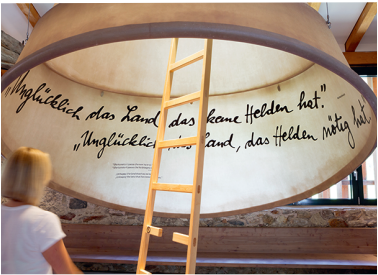 „Unglücklich das Land, das keine Helden hat.“
„Unglücklich das Land, das Helden nötig hat.